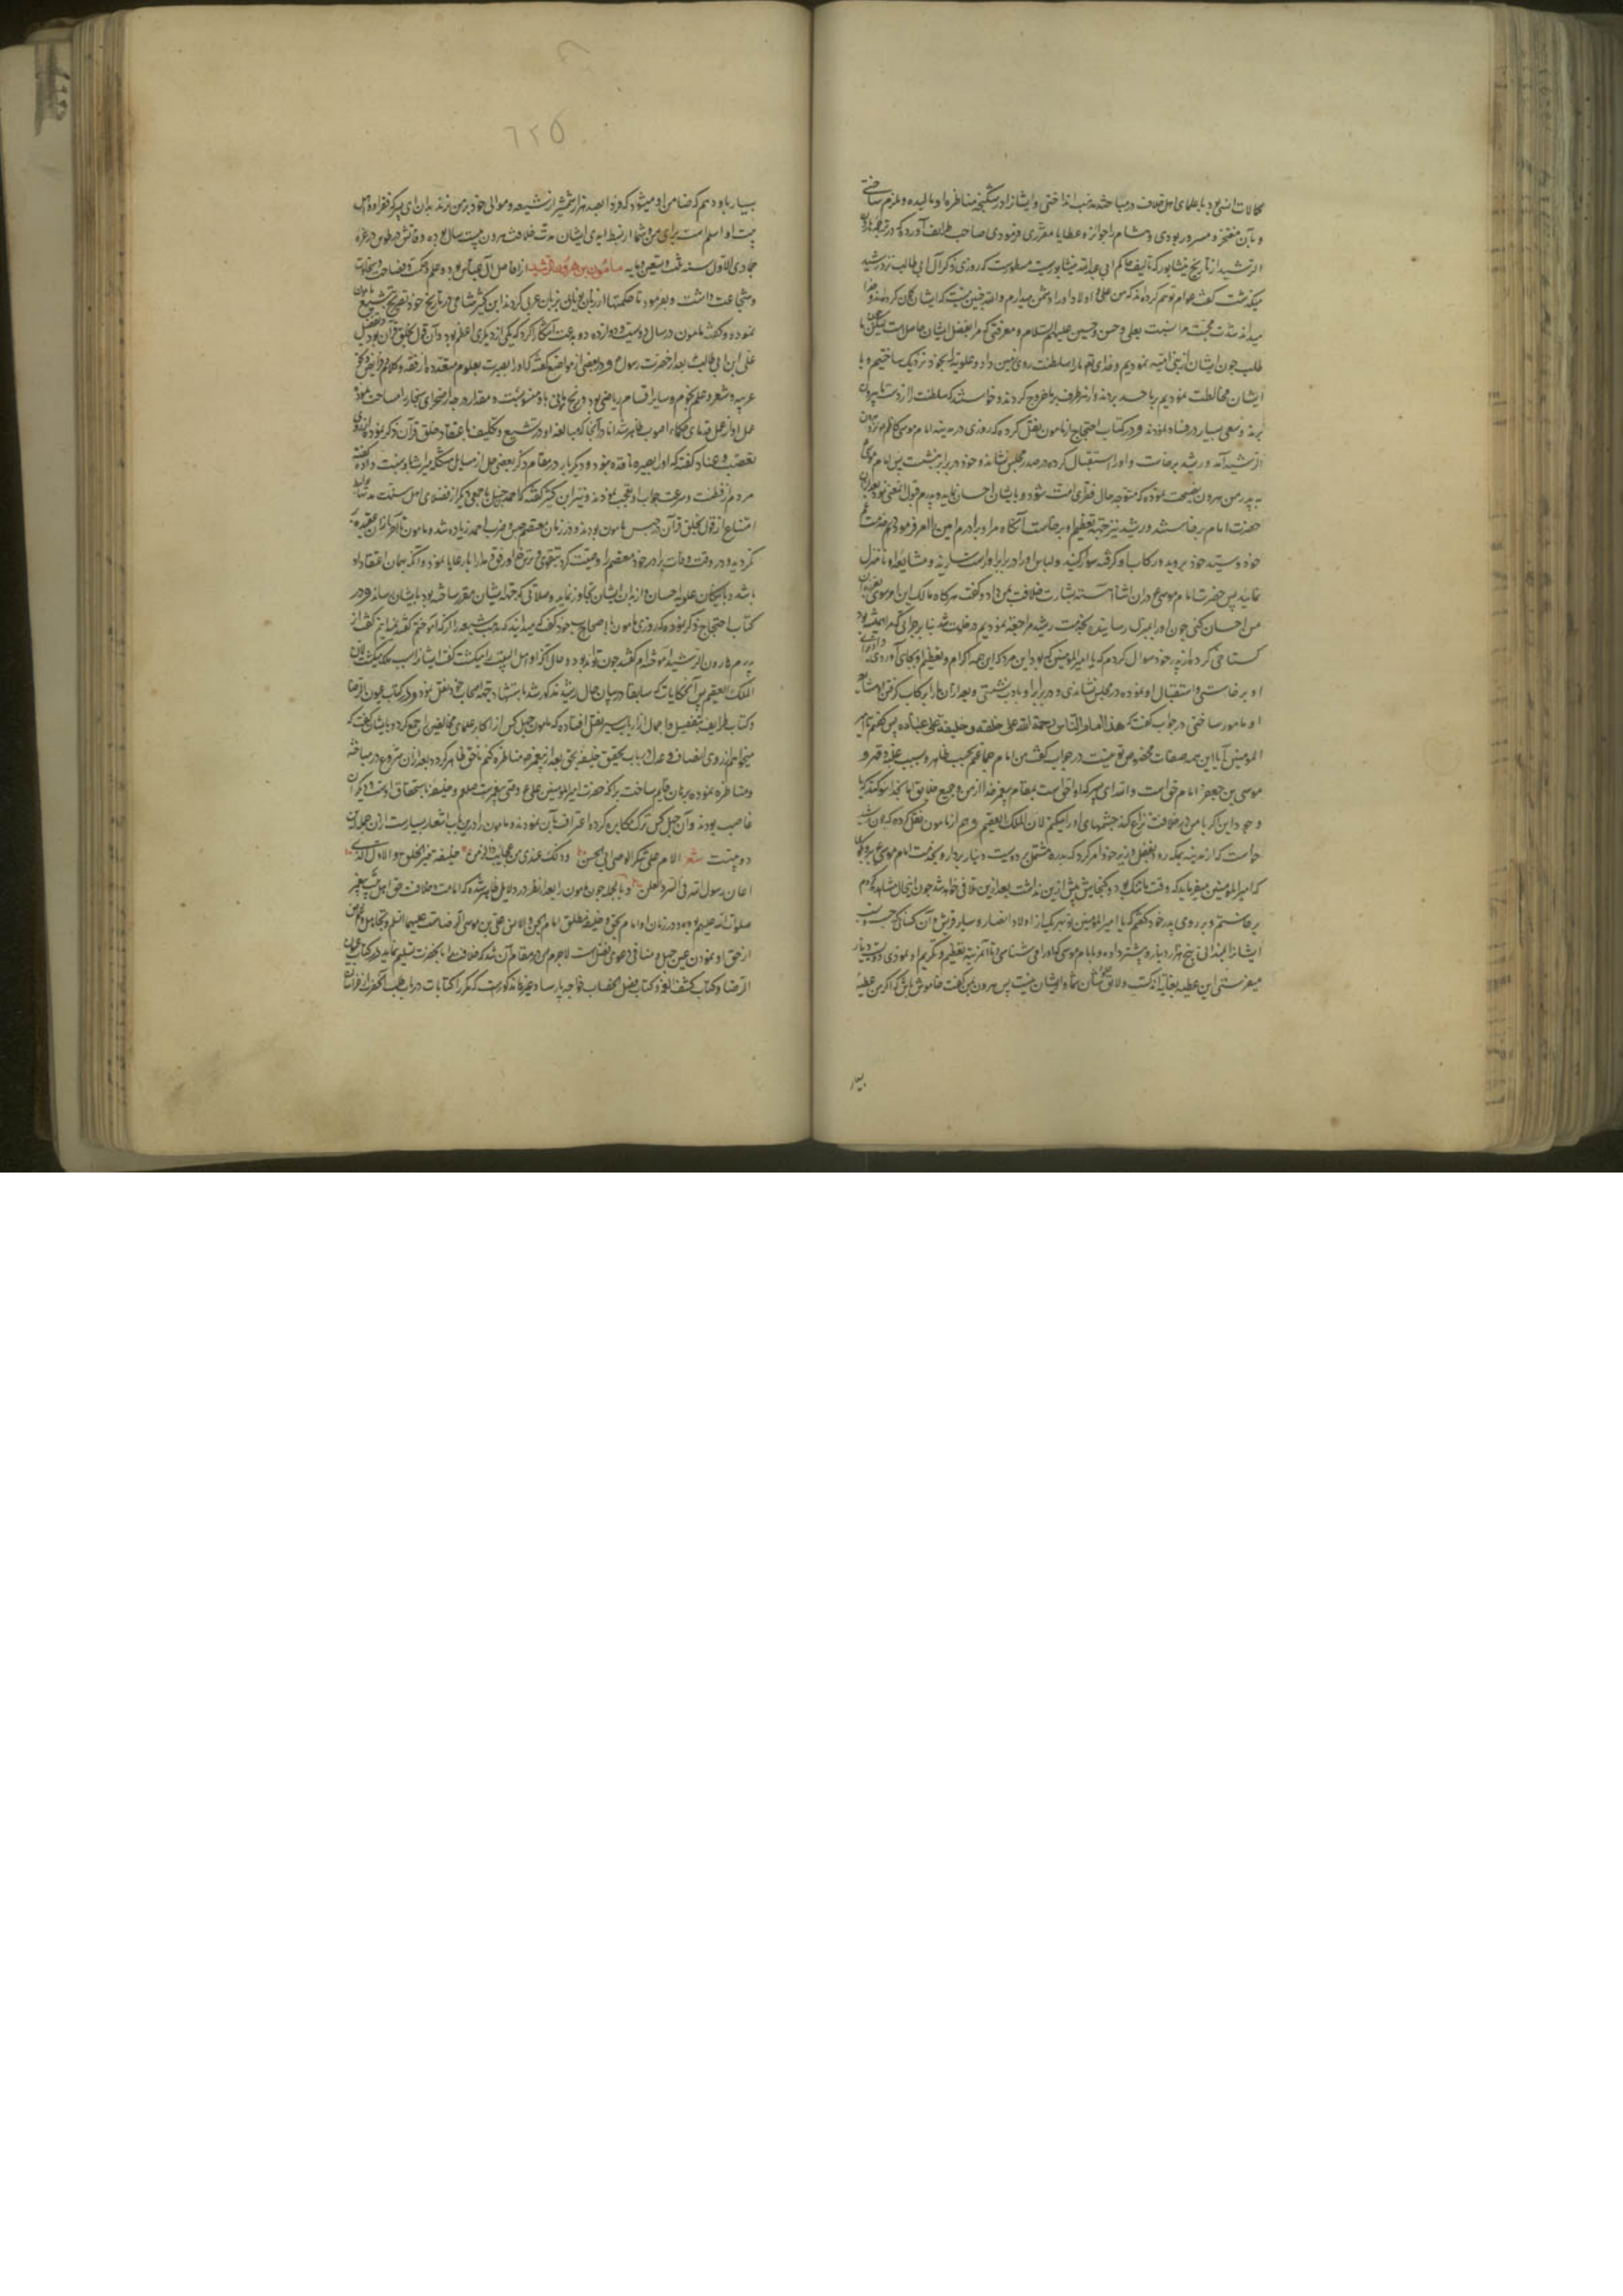 کالات انسی بود با علمای اهل خلاف در مباحثه مذهب انداختی و ایشان را در شکنجه مناظره او مالیده و ملزم ساختی
و بآن مفتخر و مسرور بودی و هشام را جوایز و عطایا مقرری فرمودی صاحب طرایف آورده که در ترجمه هارون
الرشید از تاریخ نیشابور که تالیف حاکم ابی عبدالله نیشابوریست مسطورست که روزی ذکر آل ابی طالب نزد رشید
میگذشت گفت عوام توهم کرده‌اند که من علی و اولاد او را دشمن میدارم والله چنین نیست که ایشان گمان کرده‌اند و خدا
میداند شدت محبت مرا نسبت بعلی و حسن و حسین علیهم السلام و معرفتی که مرا بفضل ایشان حاصلست لیکن ما
طلب خون ایشان از بنی امیه نمودیم و خدای تعم ما را سلطنت روی زمین داد و علویه را بخود نزدیک ساختیم و با
ایشان مخالطت نمودیم بر ما حسد بردند و از هر طرف بر ما خروج کردند و خواستند که سلطنت را از دست ما بیرون
برند و سعی بسیار در فساد نمودند و در کتاب احتجاج از مامون نقل کرده که روزی در مدینه امام موسی کاظم نزد هارون
الرشید آمد و رشید برخاست و او را استقبال کرده در صدر مجلس نشاند و خود در برابر نشست پس امام موسی
به پدر من هرون نصیحت نموده که متوجه حال فقرای امت شود و بایشان احسان نماید و پدرم قبول آنمعنی نمود بعد از آن
حضرت امام برخاستند و رشید نیز جهة تعظیم او برخاست آنگاه مرا و برادرم امین را امر فرمود که در خدمت عم
خود و سید خود بروید و رکاب او گرفته سوار کنید و لباس او را در برابر او راست سازید و مشایعه او تا منزل
نمایید پس حضرت امام موسی ع در آن اثنا آهسته بشارت خلافت بمن داد و گفت هرگاه مالک این امر شوی بفرزندان
من احسان کنی چون او را بسرای رسانیده بخدمت رشید مراجعه نمودیم در خلوت
گستاخی کرده از پدر خود سوال کردم که یا امیر المومنین که بود این مرد که این همه اکرام و تعظیم او بجای آوردی و از برای
او برخاستی و استقبال او نموده در مجلس نشاندی و در برابر او بادب نشستی و بعد از آن ما را برکاب گرفتن و مشایعه
او مامور ساختی در جواب گفت که هذا امام الناس و حجة الله علی خلقه و خلیفته علی عباده پس گفتم یا امیر
المومنین آیا این همه صفات مخصوص تو نیست در جواب گفت من امام جماعتم بحسب ظاهر و بسبب غلبه و قهر و
موسی بن جعفر امام حق است والله ای پسر که او احق است بمقام پیغمبر خدا از من و جمیع خلایق اما بخدا سوگند که با
وجود این اگر با من در خلافت نزاع کند چشمهای او را میکنم لان الملک العقیم و هم از مامون نقل کرده که چون رشید
خواست که از مدینه بمکه رود بفضل وزیر خود امر کرد که بدره مشتمل بر دویست دینار بردار و بخدمت امام موسی ع برو و بگو
که امیر المومنین میفرماید که وقت ما تنگ بود و گنجایش بیش ازین نداشت بعد ازین تلافی خواهد شد چون اینحال مشاهده کردم
برخاستم و بر روی پدر خود گفتم که یا امیر المومنین تو بهر یک از اولاد انصار و سایر قریش و آن کسان که حسب و نسب
ایشان را نمیدانی پنج هزار دینار و بیشتر داده و با امام موسی که او را می‌شناسی و تا آنمرتبه تعظیم و تکریم او نمودی دویست دینار
میفرستی این عطیه بغایة اندکست و لایق شان شما و ایشان نیست پس هرون بمن گفت خاموش باش که اگر من عطیه
بسیار
٦٢٥
بسیار باو دهم که ضامن او میشود که فردا بصد هزار شمشیر از شیعه و موالی خود بر من نزند بدان ای پسر که فقر او و اهل
بیت او اسلم است برای من و شما از بسط ایدی ایشان مدت خلافت هرون بیست سال بوده و وفاتش در طوس در غره
جمادی الاول سنه ثلث و تسعین و مایه مامون بن هرون الرشید از افاضل آل عباس بود و علم و حکمت و فصاحت و سخاوت
و شجاعت داشت و بفرمود تا حکمتها از زبان یونانی بزبان عربی کردند ابن کثیر شامی در تاریخ خود تصریح بتشیع مامون
نموده و گفته مامون در سال دویست و دوازده دو بدعت آشکارا کرد که یکی از دیگری اعظم بود و آن قول بخلق قرآن بود و تفضیل
علی ابن ابی طالب بعد از حضرت رسول ص و در بعضی از مواضع گفته که او را بصیرت بعلوم متعدده از فقه و کلام و فرایض و نحو
عربیه و شعر و علم نجوم و سایر اقسام ریاضی بود و زیج مامونی باو منسوبست و مقدار درجه از صحرای سنجار را مساحت نمود
عمل او از عمل قدمای حکما اصوب ظاهر شد اما در آنجا که مبالغه او در تشیع و تکلیف باعتقاد خلق قرآن ذکر نموده از روی
تعصب و عناد گفته که او را بصیره نافذه نبود و دیگر بار در مقام ذکر بعضی حل از مسایل مشکله میراث باو نسبت داده و گفته
مردم از فطنت و سرعت جواب او تعجب نمودند و نیز ابن کثیر گفته که احمد حنبل با جمعی دیگر از فضلای اهل سنت مدتها بواسطه
امتناع از قول بخلق قرآن در حبس مامون بودند و در زمان معتصم حبس و ضرب احمد زیاده شد و مامون تا آخر از آن عقیده بر
نگردید و در وقت وفات برادر خود معتصم را وصیت کرد بتقوی و ترحم و رفق و مدارا با رعایا نمود و آنکه بهمان اعتقاد او
باشد و با نیکان علویه احسان و از بدان ایشان تجاوز نماید و صلاتی که جهة ایشان مقرر ساخته بود بایشان رساند و در
کتاب احتجاج ذکر نموده که روزی مامون با اصحاب خود گفت که میدانید که مذهب شیعه را از که آموختم گفتند نمیدانیم گفت از
پدرم هارون الرشید آموخته‌ام گفتند چون تواند بود و حال آنکه او اهل البیت را میکشت گفت ایشان را بسبب ملک میکشت لان
الملک العقیم پس آنحکایات که سابقا در بیان حال رشید مذکور شد باستشهاد جهة اصحاب خود نقل نمود و در کتاب عیون الرضا
و کتاب طرایف بتفصیل و اجمال نقل افتاده که مامون چهل کس از اکابر علمای مخالفین را جمع کرد و بایشان گفت که
میخواهم از روی انصاف و عدل در باب تحقیق خلیفه بحق بعد از پیغمبر ص مناظره کنم تا حق ظاهر گردد بعد از آن شروع در مباحثه
و مناظره نموده برهان قایم ساخت بر آنکه حضرت امیر المومنین علی ع وصی پیغمبرست صلعم و خلیفه باستحقاق اوست و دیگران
غاصب بودند و آن چهل کس ترک مکابره کرده اعتراف بآن نمودند و مامون را درین باب اشعار بسیارست از آن جمله این
دو بیتست شعر الام علی شکر الوصی ابی الحسن و ذلک عندی من عجایب ذا الزمن خلیفة خیر الخلق و الاول الذی
اعان رسول الله فی السر و العلن و بالجمله چون مامون را بعد از نظر در دلایل ظاهر شده که امامت و خلافت حق اهل بیت پیغمبر
صلوات الله علیهم بوده و در زمان او امام بحق و خلیفه مطلق امام الجن و الانس علی بن موسی الرضاست علیهما السلم و تجاهل و تغافل
از حق او نمودن عین جهل و منافی دعوی فضل است لاجرم در مقام آن شد که خلافت را بآنحضرت تسلیم نماید و در کتاب عیون
الرضا و کتاب کشف الغمه و کتاب فصل الخطاب خواجه پارسا و غیرها مذکورست که مکررا کتابات در باب طلب آنحضرت از خراسان